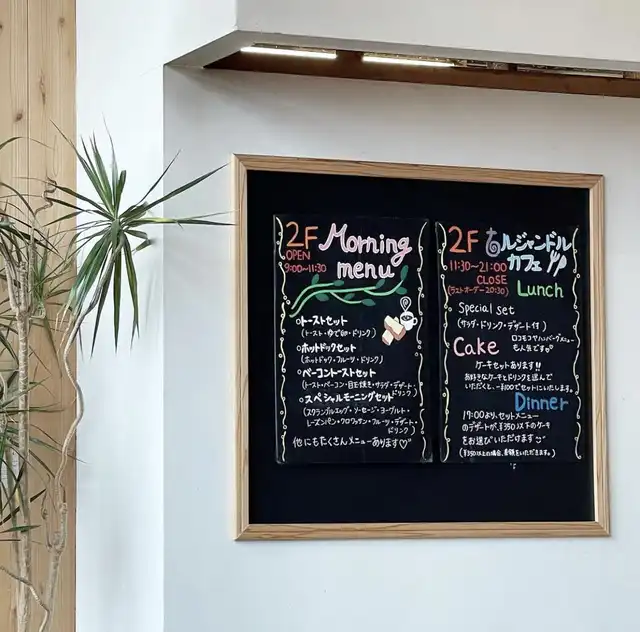 2F Morning
OPEN
9:00~11:30
menu
○トーストセット
(トースト・ゆで卵・ドリンク)
○ホットドックセット
(ホットドック・フルーツ・ドリンク)
○ベーコントーストセット
(トースト・ベーコン・目玉焼き・サラダ・デザート・
ドリンク)
○スペシャルモーニングセット
(スクランブルエッグ・ソーセージ・ヨーグルト・
レーズンパン・クロワッサン・フルーツ・デザート・
ドリンク)
他にもたくさんメニューあります♡
2F ルジャンドル
カフェ
11:30~21:00
CLOSE
(ラストオーダー20:30)
Lunch
Special set
(サラダ・ドリンク・デザート付)
ロコモコやハンバーグメニュー
も人気です
Cake
ケーキセットあります!!
お好きなケーキとドリンクを選んで
いただくと、−¥100でセットにいたします。
Dinner
17:00より、セットメニュー
のデザートが、¥350以下のケーキ
をお選びいただけます
(¥350以上の場合、差額をいただきます。)